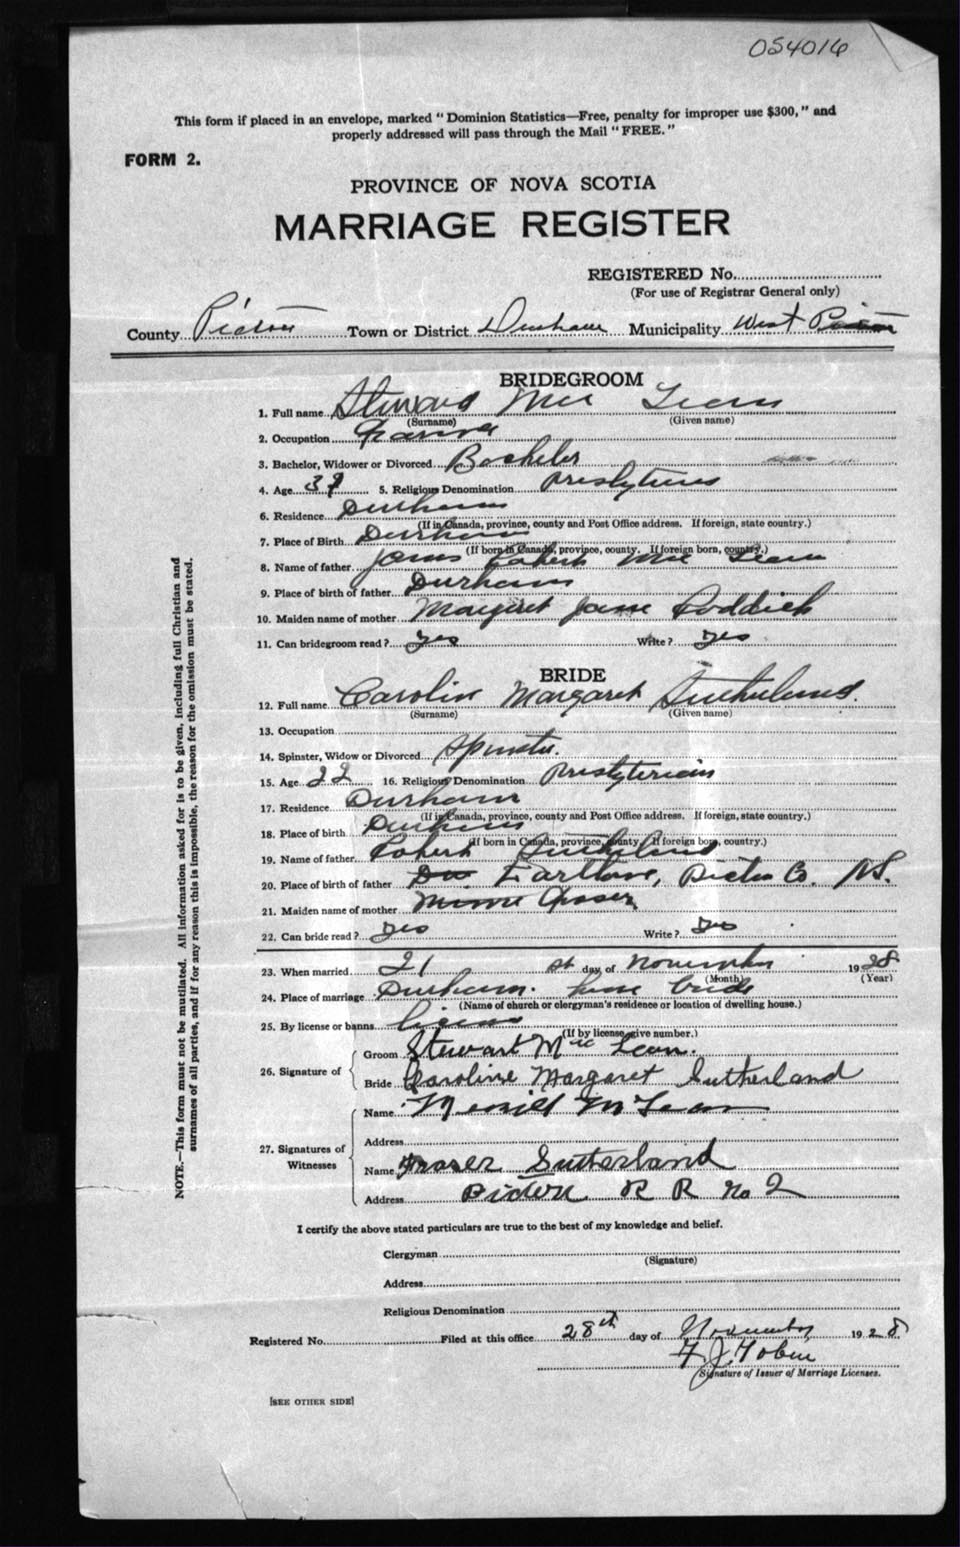 054016
This form if placed in an envelope, marked "Dominion Statistics—Free, penalty for improper use $300," and
properly addressed will pass through the Mail "FREE."
FORM 2.
PROVINCE OF NOVA SCOTIA
MARRIAGE REGISTER
REGISTERED No.
(For use of Registrar General only)
County Pictou Town or District Durham Municipality West Pictou
BRIDEGROOM
1. Full name Steward Mac Lean
(Surname) (Given name)
2. Occupation Farmer
3. Bachelor, Widower or Divorced Bachelor
4. Age 5. Religious Denomination Presbyterian
6. Residence Durham
(If in Canada, province, county and Post Office address. If foreign, state country.)
7. Place of Birth Durham
(If born in Canada, province, county. If foreign born, country.)
8. Name of father James Robert Mac Lean
9. Place of birth of father Durham
10. Maiden name of mother Margaret Jane Roddick
11. Can bridegroom read? yes Write? yes
BRIDE
12. Full name Carolin Margaret Sutherland.
(Surname) (Given name)
13. Occupation
14. Spinster, Widow or Divorced Spinster.
15. Age 22 16. Religious Denomination Presbyterian
17. Residence Durham
(If in Canada, province, county and Post Office address. If foreign, state country.)
18. Place of birth Durham
(If born in Canada, province, county. If foreign born, country.)
19. Name of father Robert Sutherland
20. Place of birth of father Earltown, Pictou Co. N.S.
21. Maiden name of mother Minnie Fraser
22. Can bride read? yes Write? yes
23. When married 21 st day of November 1928
(Month) (Year)
24. Place of marriage Durham. home bride
(Name of church or clergyman's residence or location of dwelling house.)
25. By license or banns license
(If by license give number.)
26. Signature of
Groom Stewart Mac Lean.
Bride Caroline Margaret Sutherland
27. Signatures of Witnesses
Name McLean
Address
Name Fraser Sutherland
Address Pictou R R No 2
I certify the above stated particulars are true to the best of my knowledge and belief.
Clergyman
(Signature)
Address
Religious Denomination
Registered No. Filed at this office 28th day of November 1928
F. J. Tobin
Signature of Issuer of Marriage Licenses.
[SEE OTHER SIDE]
NOTE.—This form must not be mutilated. All information asked for is to be given, including full Christian and
surnames of all parties, and if for any reason this is impossible, the reason for the omission must be stated.